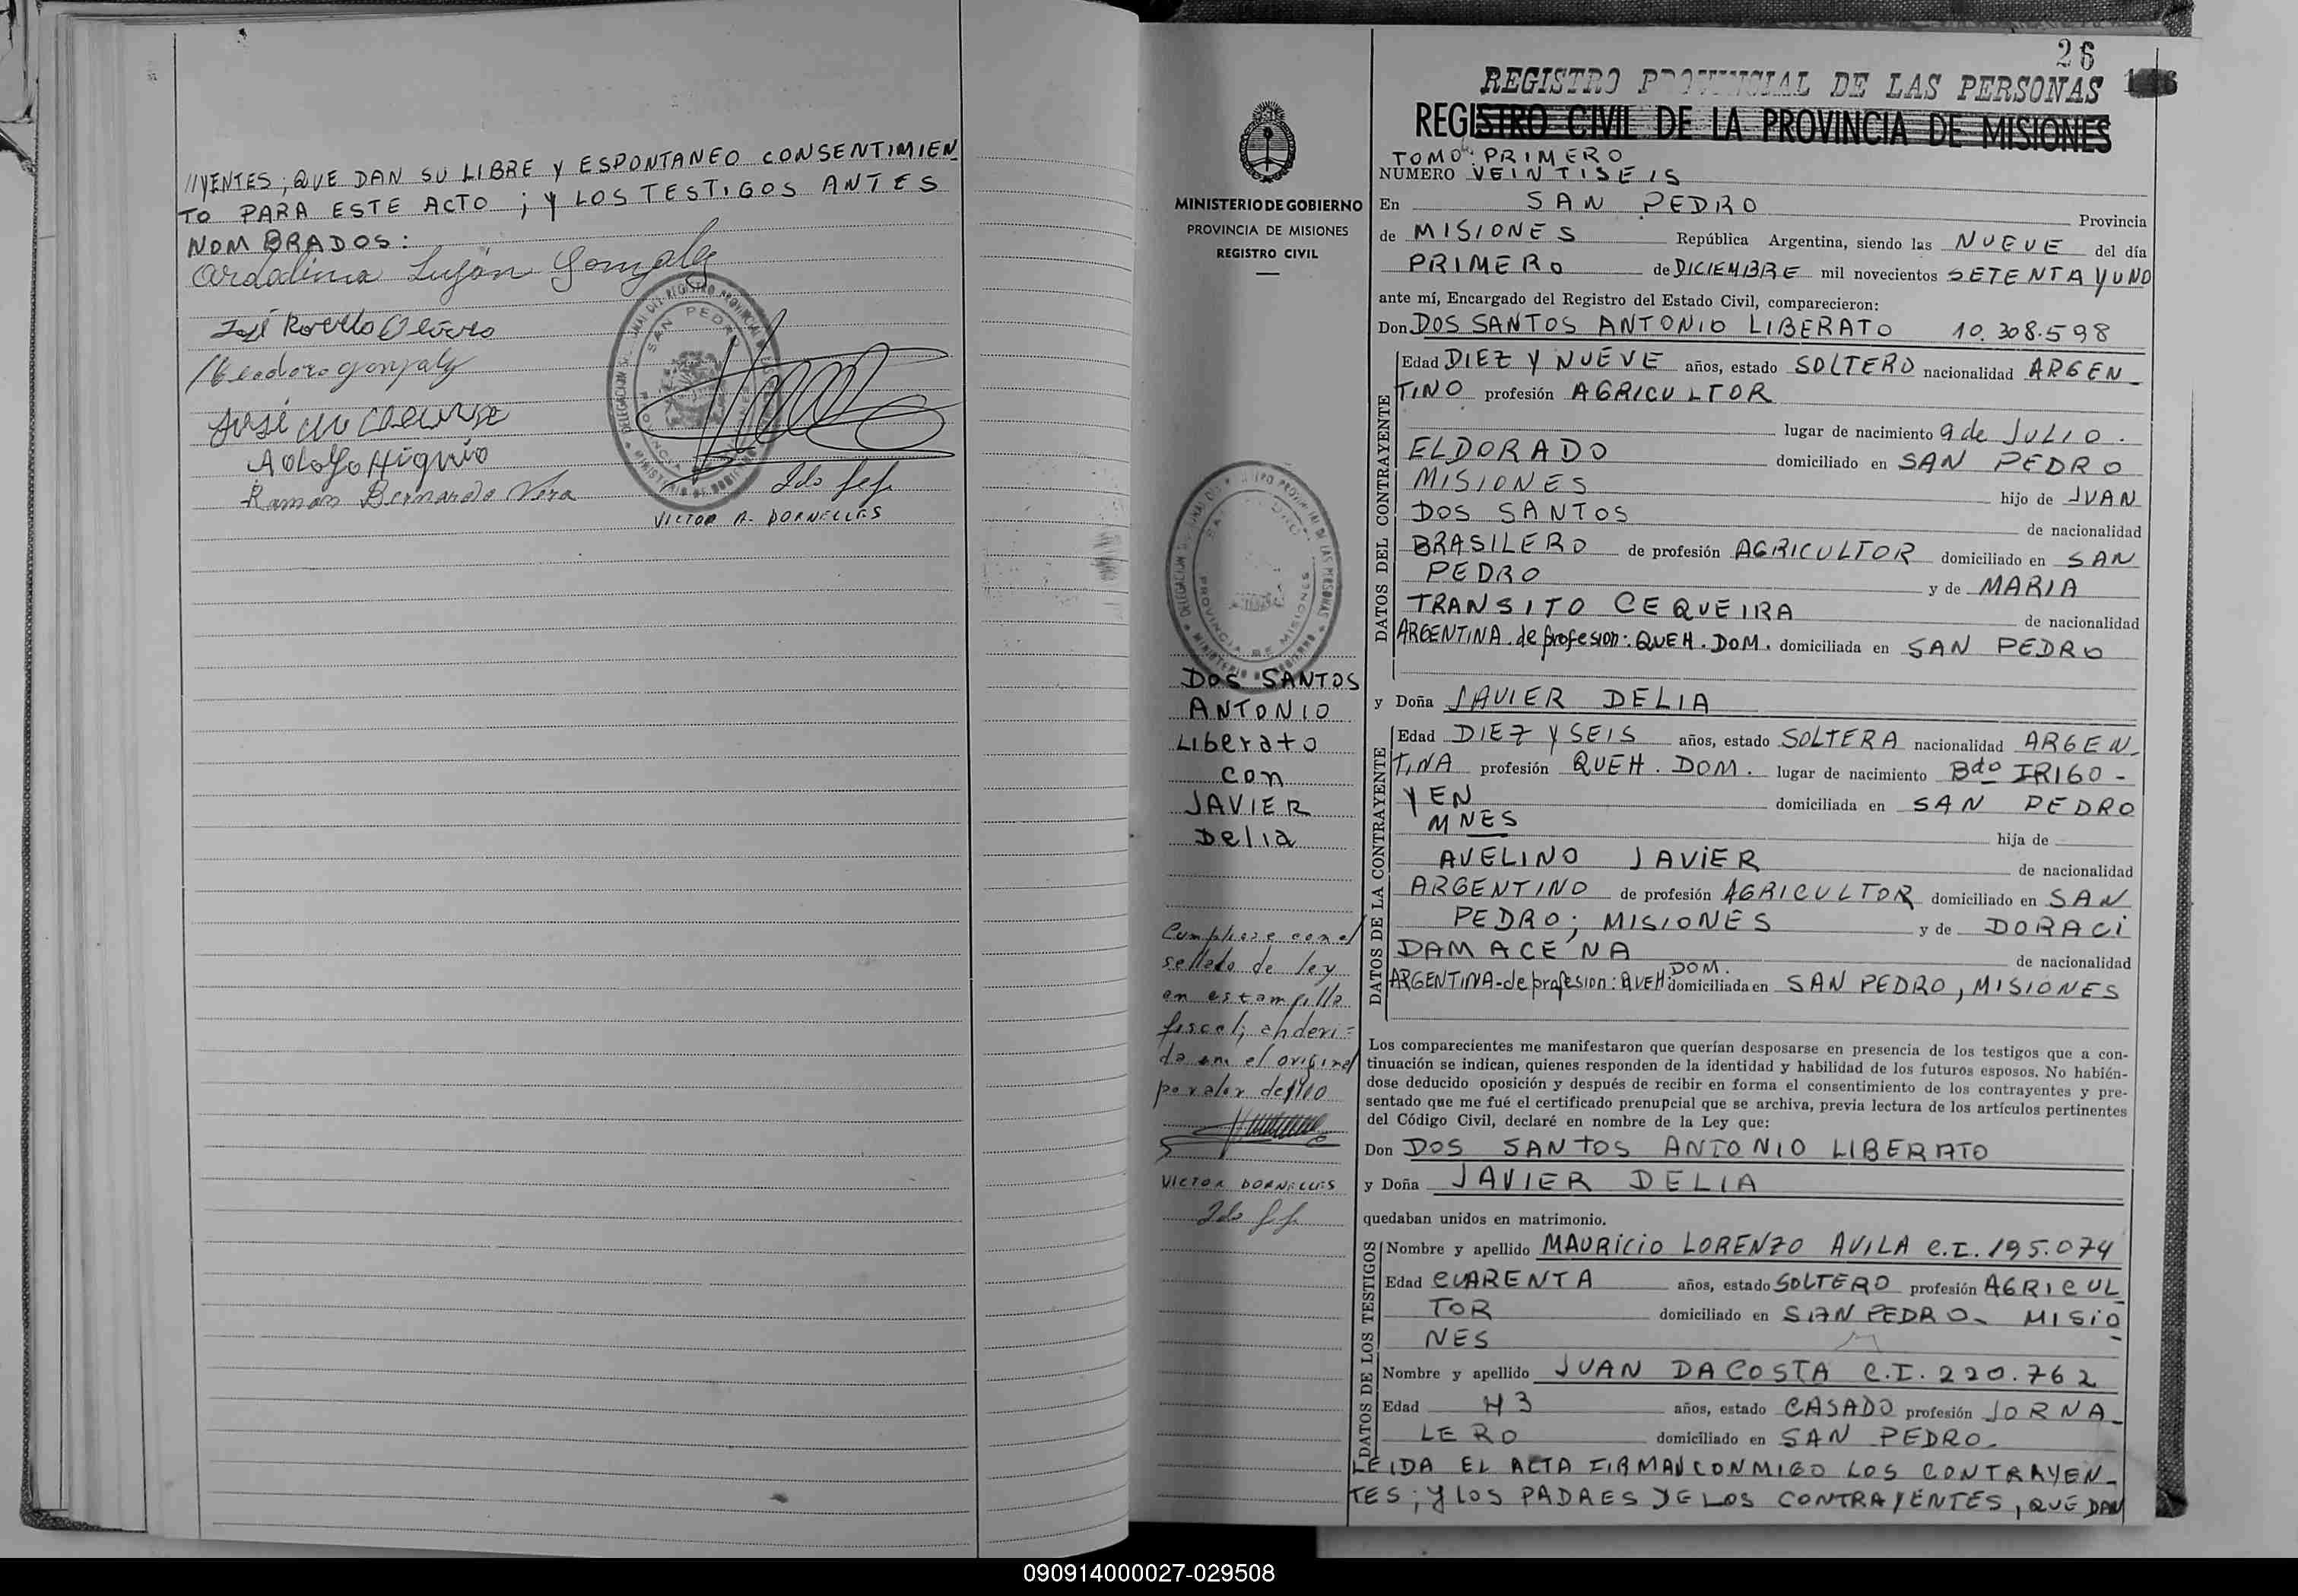 //YENTES; QUE DAN SU LIBRE Y ESPONTANEO CONSENTIMIEN
TO PARA ESTE ACTO ; Y LOS TESTIGOS ANTES
NOMBRADOS:
Ardolina Luján Gonzalez
José Olivero
Teodoro Gonzalez
José
Adolfo Higinio
Ramón Bernardo Vera
SAN PEDRO
VICTOR A. DORNELLES
26
REGISTRO PROVINCIAL DE LAS PERSONAS
REGISTRO CIVIL DE LA PROVINCIA DE MISIONES
MINISTERIO DE GOBIERNO
PROVINCIA DE MISIONES
REGISTRO CIVIL
DOS SANTOS
ANTONIO
Liberato
con
JAVIER
Delia
Cumpliose con el
sellado de ley
en estampilla
fiscal; adheri=
da en el original
por valor de
VICTOR DORNELLES
TOMO: PRIMERO
NUMERO VEINTISEIS
En SAN PEDRO Provincia
de MISIONES República Argentina, siendo las NUEVE del día
PRIMERO de DICIEMBRE mil novecientos SETENTA Y UNO
ante mí, Encargado del Registro del Estado Civil, comparecieron:
Don DOS SANTOS ANTONIO LIBERATO 10.308.598
DATOS DEL CONTRAYENTE
Edad DIEZ Y NUEVE años, estado SOLTERO nacionalidad ARGEN-
TINO profesión AGRICULTOR
lugar de nacimiento 9 de JULIO.
ELDORADO domiciliado en SAN PEDRO
MISIONES hijo de JUAN
DOS SANTOS de nacionalidad
BRASILERO de profesión AGRICULTOR domiciliado en SAN
PEDRO y de MARIA
TRANSITO CEQUEIRA de nacionalidad
ARGENTINA de profesion: QUEH. DOM. domiciliada en SAN PEDRO
y Doña JAVIER DELIA
DATOS DE LA CONTRAYENTE
Edad DIEZ Y SEIS años, estado SOLTERA nacionalidad ARGEN-
TINA profesión QUEH. DOM. lugar de nacimiento Bdo IRIGO-
YEN domiciliada en SAN PEDRO
MNES hija de
AVELINO JAVIER de nacionalidad
ARGENTINO de profesión AGRICULTOR domiciliado en SAN
PEDRO; MISIONES y de DORACI
DAMACENA de nacionalidad
ARGENTINA-de profesion: QUEH. DOM. domiciliada en SAN PEDRO, MISIONES
Los comparecientes me manifestaron que querían desposarse en presencia de los testigos que a con-
tinuación se indican, quienes responden de la identidad y habilidad de los futuros esposos. No habién-
dose deducido oposición y después de recibir en forma el consentimiento de los contrayentes y pre-
sentado que me fué el certificado prenupcial que se archiva, previa lectura de los artículos pertinentes
del Código Civil, declaré en nombre de la Ley que:
Don DOS SANTOS ANTONIO LIBERATO
y Doña JAVIER DELIA
quedaban unidos en matrimonio.
DATOS DE LOS TESTIGOS
Nombre y apellido MAURICIO LORENZO AVILA C.I. 195.074
Edad CUARENTA años, estado SOLTERO profesión AGRICUL
TOR domiciliado en SAN PEDRO- MISIO
NES
Nombre y apellido JUAN DACOSTA C.I. 220.762
Edad 43 años, estado CASADO profesión JORNA-
LERO domiciliado en SAN PEDRO-
LEIDA EL ACTA FIRMAN CONMIGO LOS CONTRAYEN-
TES; Y LOS PADRES DE LOS CONTRAYENTES, QUE DAN
090914000027-029508